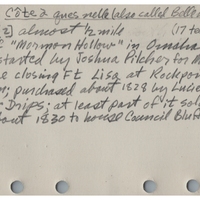 Côte à ques nelle (also called Belle
2) almost ½ mile (17 to
"Mormon Hollow" in Omaha
started by Joshua Pilcher for M
e closing Ft Lisa at Rockpor
; purchased about 1828 by Lucie
Drips; at least part of it sol
bout 1830 to house Council Bluf